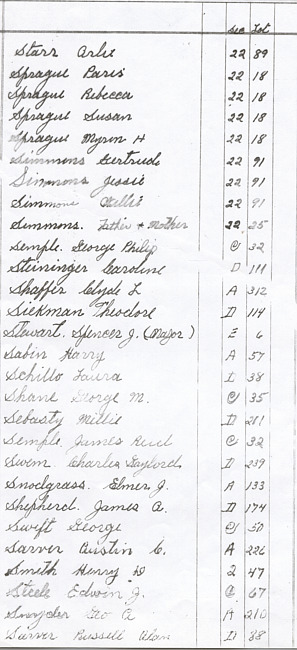 Sec Lot
Starr Arlie 22 89
Sprague Paris 22 18
Sprague Rebecca 22 18
Sprague Susan 22 18
Sprague Myron H 22 18
Simmons Gertrude 22 91
Simmons Jessie 22 91
Simmons 22 91
Simmons. Father + Mother 22 25
Semple. George Philip C 32
Steininger Caroline D 111
Shaffer Clyde L A 312
Siekman Theodore D 114
Stewart. Spencer J. (Major) E 6
Sabin Harry A 57
Schillo Laura 38
Shane George M. C 35
Sebasty Millie D 211
Semple James Reid C 32
Swem Charles Gaylord D 239
Snodgrass. Elmer J. A 133
Shepherd. James A. D 174
Swift George C 50
Sarver Austin C. A 226
Smith Henry D 2 47
Steele Edwin J. C 67
Snyder Geo A A 210
Sarver Russell Alan D 38